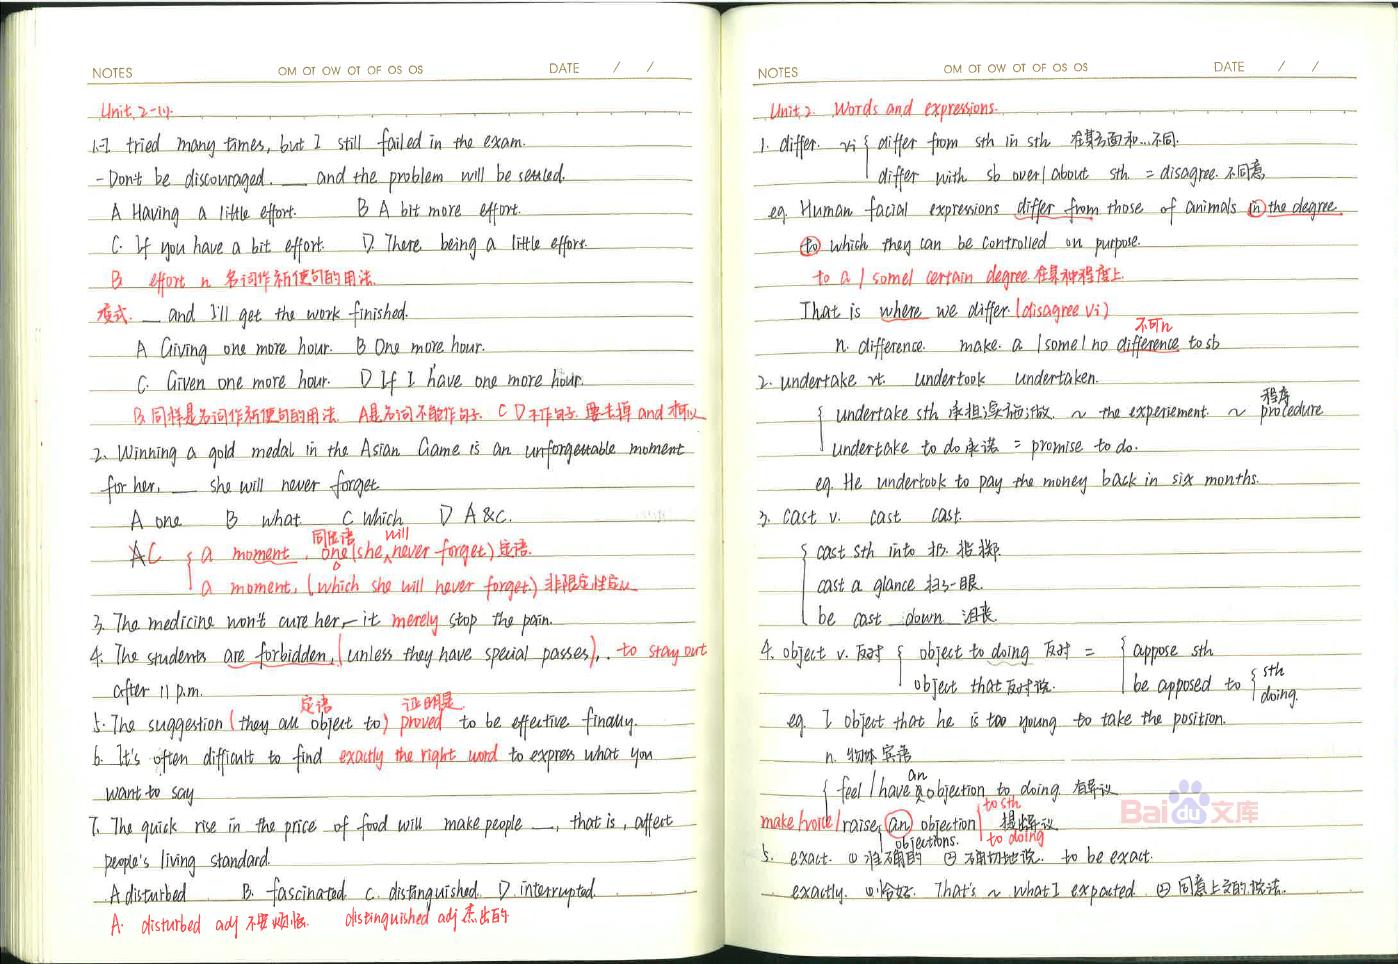 NOTES OM OT OW OT OF OS OS DATE / /
Unit 2-(1).
1.-I tried many times, but I still failed in the exam.
-Don't be discouraged. ___ and the problem will be settled.
A Having a little effort. B A bit more effort.
C. If you have a bit effort. D. There being a little effort.
B effort n 名词作祈使句的用法.
变式. ___ and I'll get the work finished.
A Giving one more hour. B One more hour.
C. Given one more hour. D If I have one more hour.
B 同样是名词作祈使句的用法. A是名词不能作句子. C D 去掉 and 才可以
2. Winning a gold medal in the Asian Game is an unforgettable moment
for her, ___ she will never forget
A one B what C Which D A & C.
同位语 will
AC { a moment, one (she never forget) 定语.
a moment, (which she will never forget.) 非限定性定从
3. The medicine won't cure her, - it merely stop the pain.
4. The students are forbidden, (unless they have special passes), . to stay out
after 11 p.m.
定语 证明是
5. The suggestion (they all object to) proved to be effective finally.
6. It's often difficult to find exactly the right word to express what you
want to say
7. The quick rise in the price of food will make people ___, that is, affect
people's living standard.
A disturbed B. fascinated C. distinguished. D. interrupted.
A. disturbed adj 不安 烦恼. distinguished adj 杰出的
NOTES OM OT OW OT OF OS OS DATE / /
Unit 2. Words and expressions.
1. differ. vi { differ from sth in sth 在某方面和...不同.
differ with sb over/about sth = disagree. 不同意
eg. Human facial expressions differ from those of animals in the degree
to which they can be controlled on purpose.
to a / some / certain degree. 在某种程度上
That is where we differ. (disagree vi)
不可n
n. difference. make. a / some / no difference to sb
2. undertake vt. undertook undertaken.
程序
{ undertake sth 承担 实施 做. ~ the experiement. ~ procedure
undertake to do 承诺 = promise to do.
eg. He undertook to pay the money back in six months.
3. cast v. cast cast.
{ cast sth into 扔. 投掷.
cast a glance 扫一眼.
be cast down 沮丧
4. object v. 反对 { object to doing 反对 = { appose sth
object that 反对说. be apposed to { sth
doing.
eg. I object that he is too young to take the position.
n. 物体 宾语
an
{ feel / have objection to doing. 有异议
make/voice/ raise, an objection { to sth 提出异议
objections. to doing
5. exact. ① 准确的 ② 确切地说. to be exact.
exactly. ① 恰好. That's ~ what I expected. ② 同意上文的说法.
Baidu文库